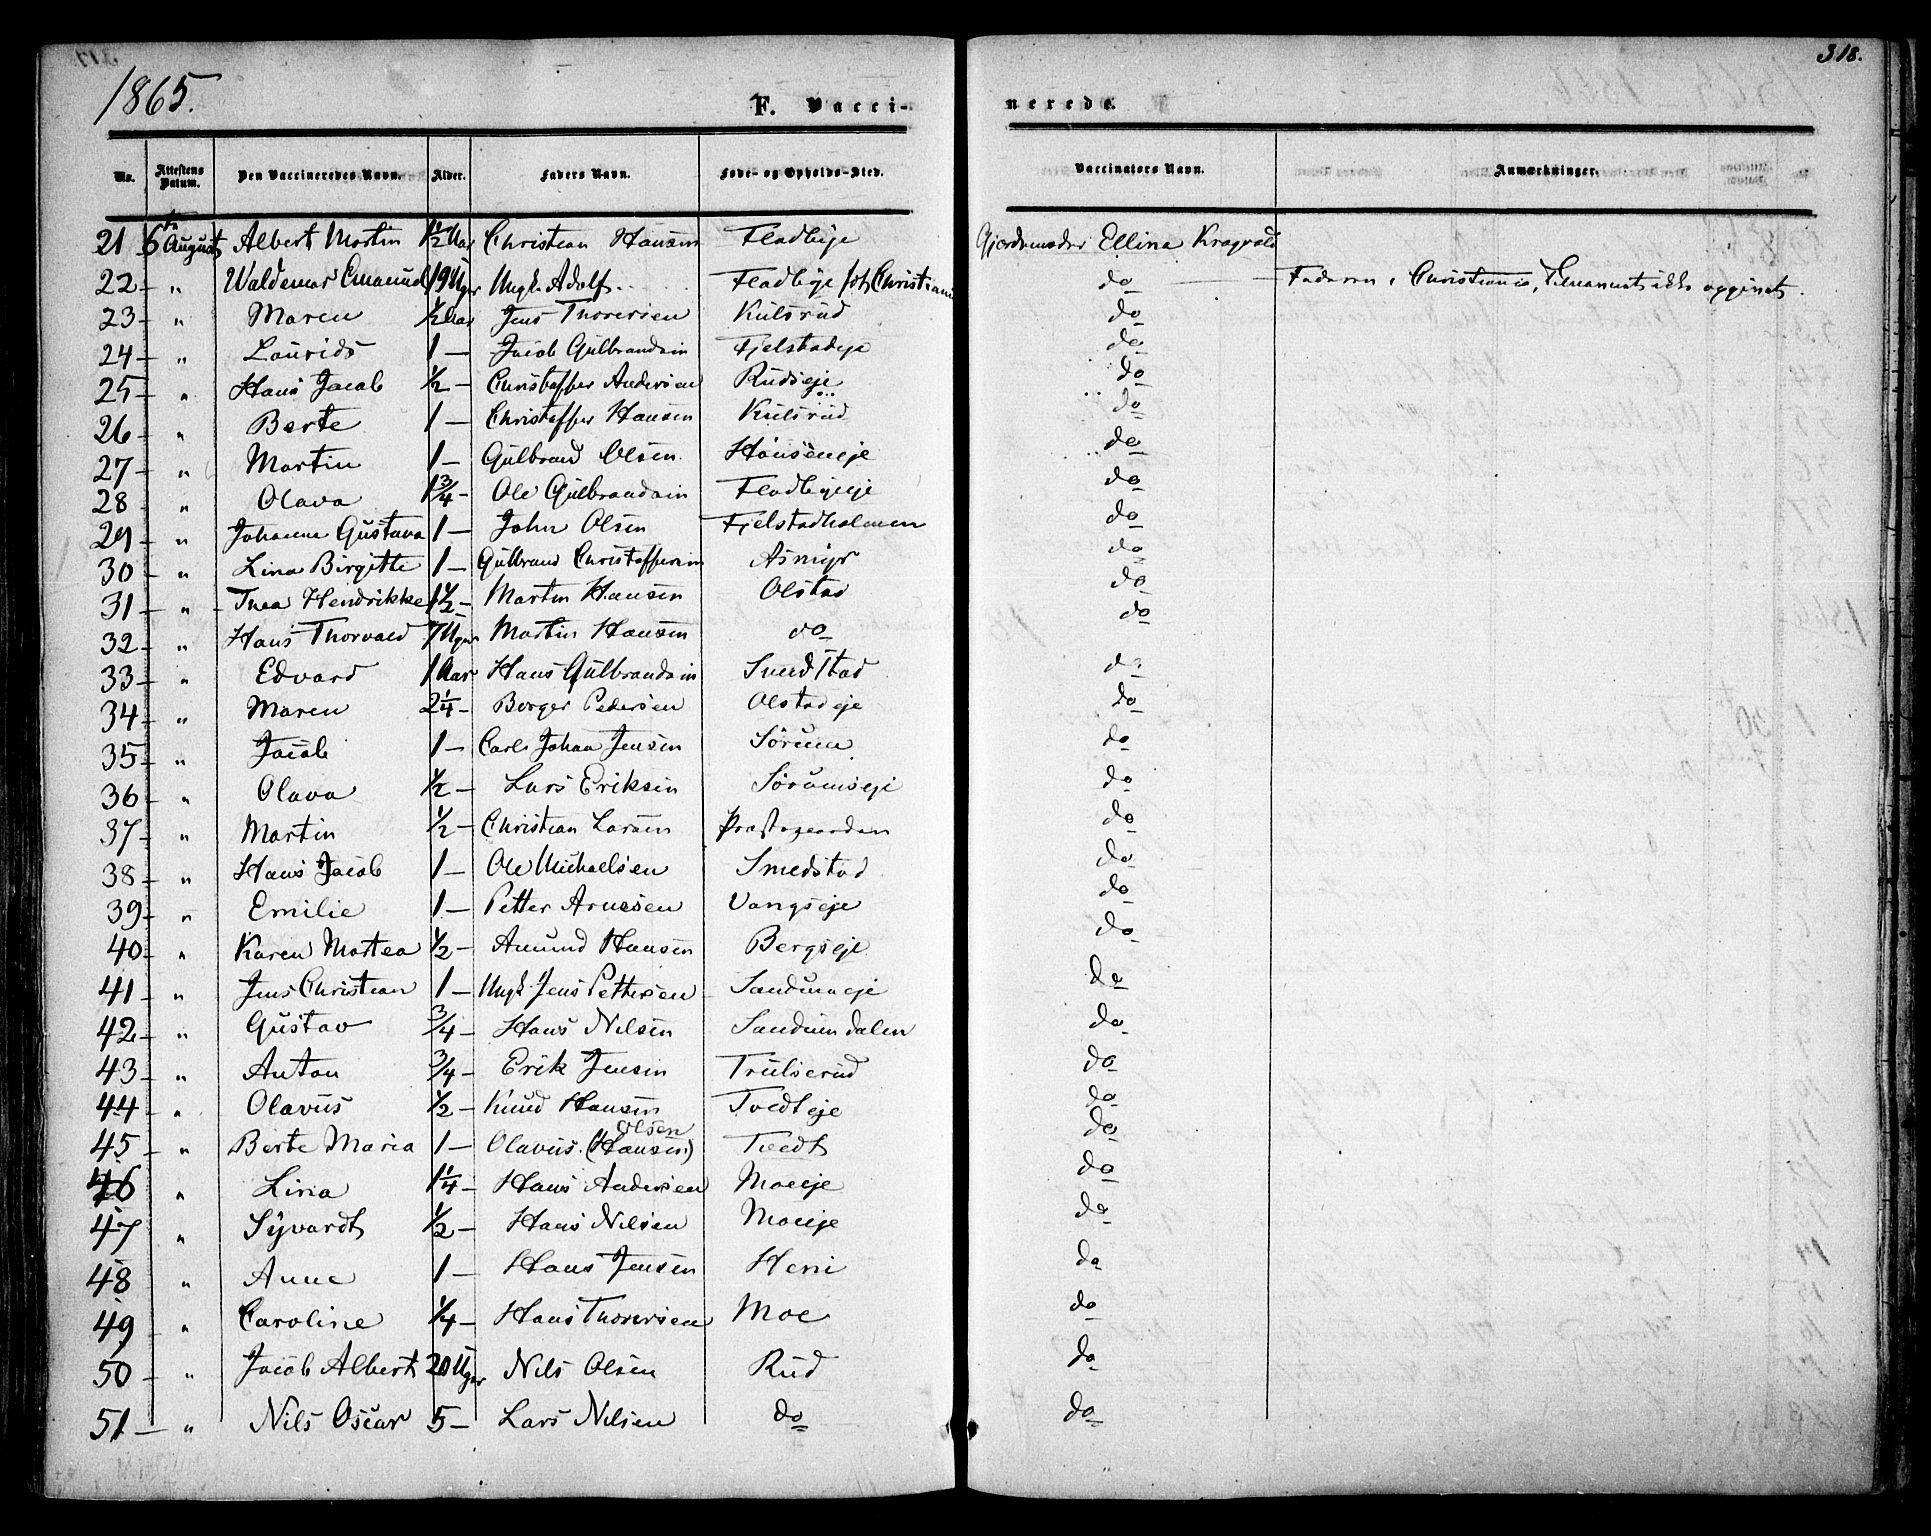 318.
1865.
F. Vacci-
nerede.
No. Attestens Datum. Den Vaccineredes Navn. Alder. Faders Navn. Føde- og Opholds-Sted. Vaccinators Navn. Anmærkninger.
21 6te August Albert Martin 1½ Aar Christian Hansen Fladbÿe Gjordemoder Ellina Kragvold
22 " Waldemar Emanuel 19 Uger Ungk. Adolf Fladbÿe Christiania do Faderen i Christiania, ikke opgivet.
23 " Maren ½ Aar Jens Thoresen Kulsrud do
24 " Laurids 1 — Jacob Gulbrandsen Fjelstadeje do
25 " Hans Jacob ½ — Christoffer Andersen Rudseje do
26 " Berte 1 — Christoffer Hansen Kulsrud do
27 " Martin 1 — Gulbrand Olsen Hönseneje do
28 " Olava 1¾ — Ole Gulbrandsen Fladbÿeeje do
29 " Johanne Gustava 1 — John Olsen Fjelstadholmen do
30 " Lina Birgitte 1 — Gulbrand Christoffersen Asmyr do
31 " Thea Hendrikke 1½ — Martin Hansen Olstad do
32 " Hans Thorvald 7 Uger Martin Hansen do do
33 " Edvard 1 Aar Hans Gulbrandsen Smedstad do
34 " Maren 2¼ — Borger Pedersen Olstadeje do
35 " Jacob 1 — Carl Johan Jensen Sörum do
36 " Olava ½ — Lars Eriksen Sörumseje do
37 " Martin ½ — Christian Larsen Præstegaarden do
38 " Hans Jacob 1 — Ole Michaelsen Smedstad do
39 " Emilie 1 — Petter Arnesen Vangseje do
40 " Karen Martea ½ — Amund Hansen Bergseje do
41 " Jens Christian 1 — Ungk. Jens Pettersen Sandumeje do
42 " Gustav ¾ — Hans Nilsen Sandumdalen do
43 " Anton ¾ — Erik Jensen Trulserud do
44 " Olavus ½ — Knud Hansen Tvedteje do
45 " Berte Maria 1 — Olavus (Hansen) Olsen Tvedt do
46 " Lina 1¼ — Hans Andersen Moeeje do
47 " Syvardt ½ — Hans Nilsen Moeeje do
48 " Anne 1 — Hans Jensen Heni do
49 " Caroline ¼ — Hans Thoresen Moe do
50 " Jacob Albert 20 Uger Nils Olsen Rud do
51 — " Nils Oscar 5 — Lars Nilsen do do